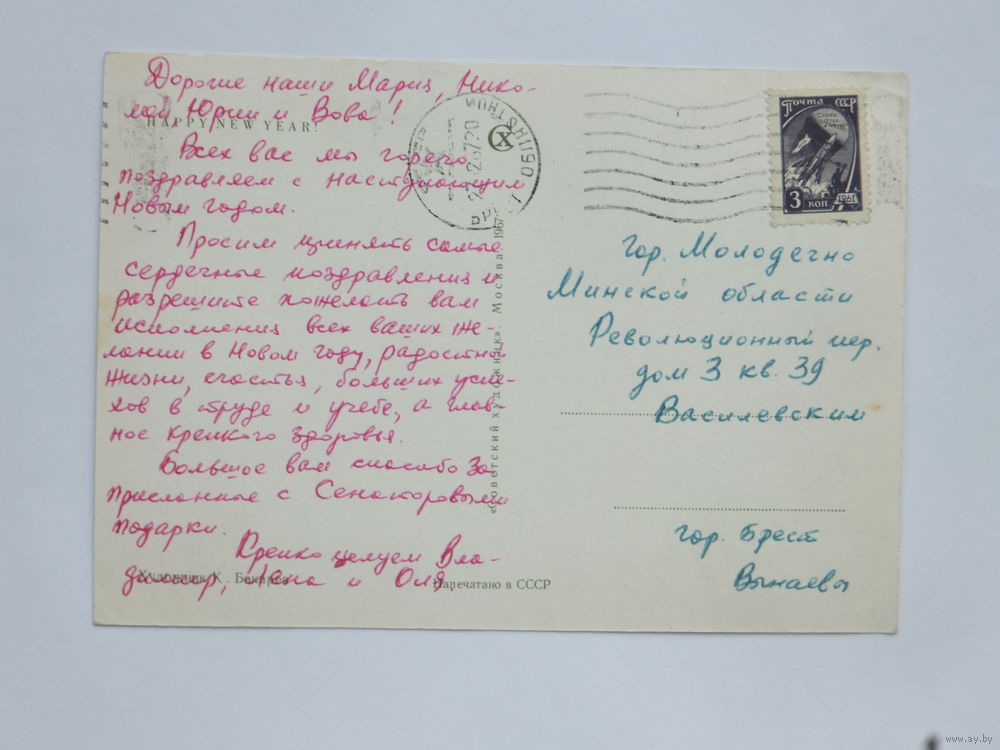 Дорогие наши Мария, Нико-
лай Юрии и Вова!
HAPPY NEW YEAR!
Всех вас мы горячо
поздравляем с наступающим
Новым годом.
Просим принять самые
сердечные поздравления и
разрешите пожелать вам
исполнения всех ваших же-
лании в Новом году, радостной
жизни, счастья, больших успе-
хов в труде и учебе, а глав
ное крепкого здоровья.
Большое вам спасибо за
присланные с Сенаторовыми
подарки.
Крепко целуем Вла-
димир, Лена и Оля.
Художник К. Бокарев
Напечатано в СССР
«Советский художник». Москва. 1967
СХ
Почта СССР
3 коп.
1961
гор. Молодечно
Минской области
Революционный пер.
дом 3 кв. 39
Василевским
гор. Брест
Вынаевы
www.ay.by